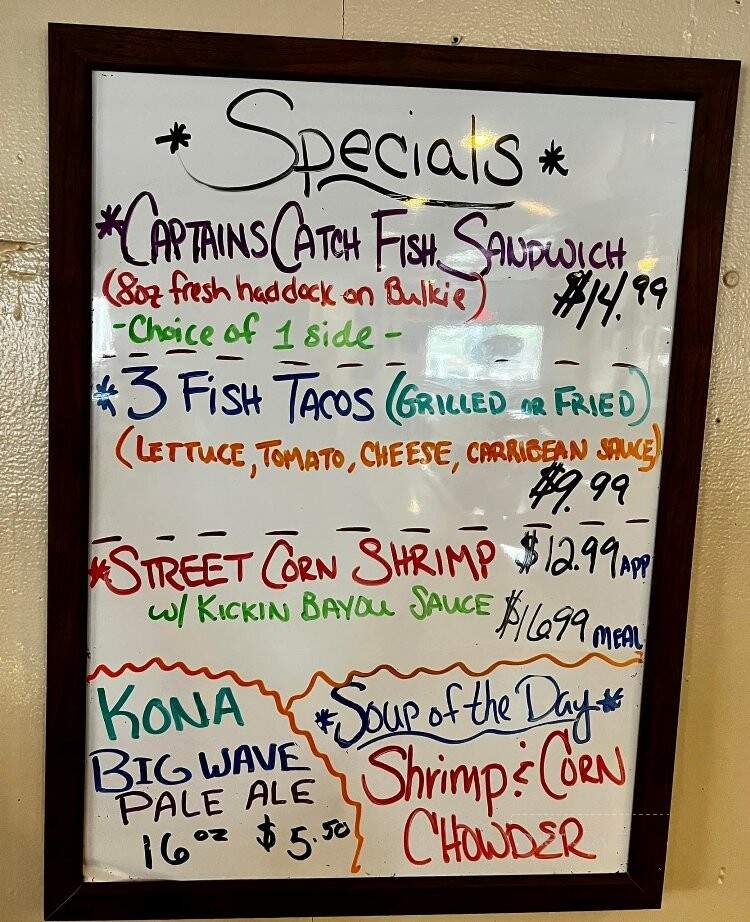 * Specials *
*CAPTAINS CATCH FISH SANDWICH
(8oz fresh haddock on Bulkie) $14.99
-Choice of 1 side-
*3 FISH TACOS (GRILLED OR FRIED)
(LETTUCE, TOMATO, CHEESE, CARRIBEAN SAUCE)
$9.99
*STREET CORN SHRIMP $12.99 APP
w/ KICKIN BAYOU SAUCE $16.99 MEAL
KONA
BIG WAVE
PALE ALE
16oz $5.50
*Soup of the Day*
Shrimp & CORN
CHOWDER